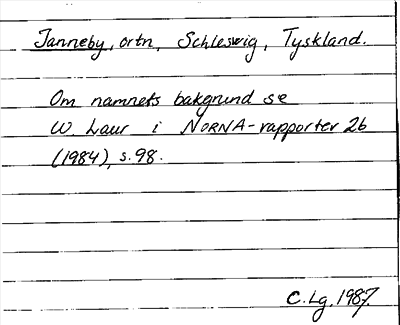 Janneby, ortn, Schleswig, Tyskland.
Om namnets bakgrund se
W. Laur i NORNA-rapporter 26
(1984), s. 98.
C. Lg. 1987.